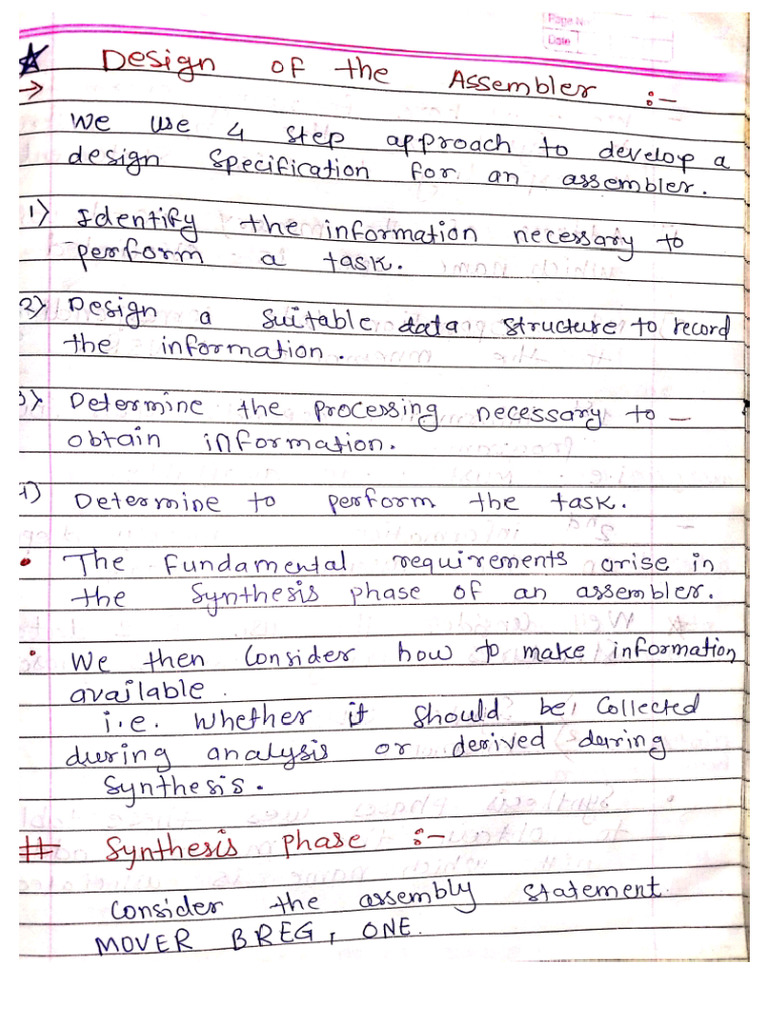 Page No
Date
☆ Design of the Assembler :-
→
We use 4 step approach to develop a
design specification for an assembler.
1) Identify the information necessary to
perform a task.
2) Design a suitable data structure to record
the information.
3) Determine the processing necessary to -
obtain information.
4) Determine to perform the task.
• The fundamental requirements arise in
the synthesis phase of an assembler.
• We then consider how to make information
available.
i.e. whether it should be collected
during analysis or derived during
synthesis.
# Synthesis phase :-
Consider the assembly statement.
MOVER BREG, ONE.